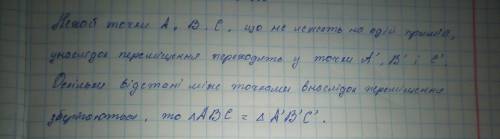 Нехай точки A, B, C, що не лежать на одній прямій,
унаслідок переміщення переходять у точки A', B' і C'.
Оскільки відстані між точками внаслідок переміщення
зберігаються, то △ABC = △A'B'C'.